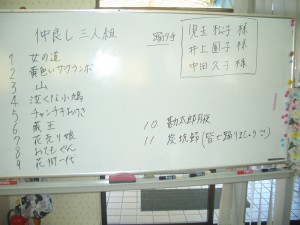 仲良し 三人組
踊り手
児玉 松子 様
井上 園子 様
中田 久子 様
1 女の道
2 黄色いサクランボ
3 山
4 泣くな小鳩
5 チャンチキおけさ
6 蔵王
7 花売り娘
8 おてもやん
9 花街一代
10 勘太郎月夜
11 炭坑節(皆で踊りましょう)